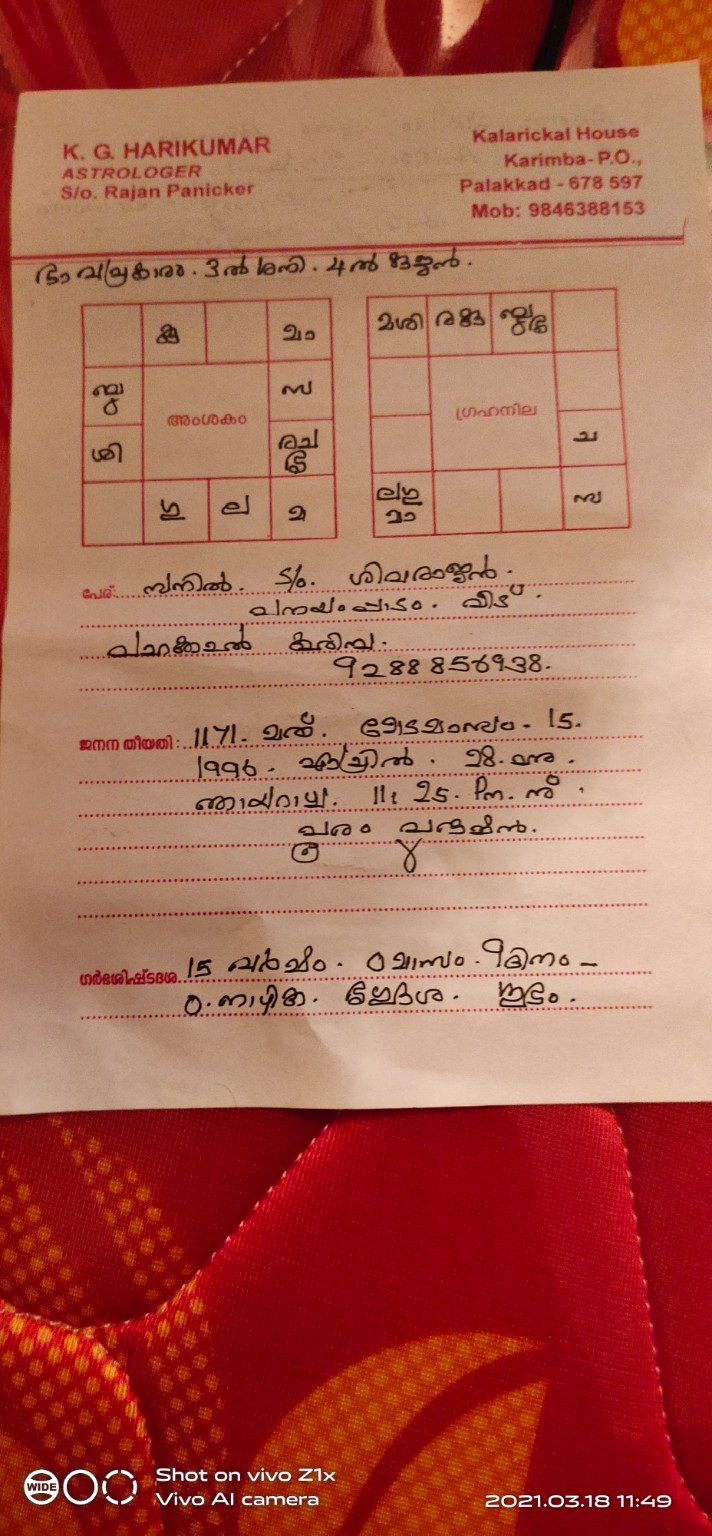 K. G. HARIKUMAR
ASTROLOGER
S/o. Rajan Panicker
Kalarickal House
Karimba- P.O.,
Palakkad - 678 597
Mob: 9846388153
ഭാവപ്രകാരം. 3ൽ ശനി. 4ൽ കുജൻ.
കു മാം
ബു സ
അംശകം
ശി
ഗു ല മ
മശി രകു ബുശു
ഗ്രഹനില
ച
ലഗു മാ സ
പേര്: സനിൽ. S/o. ശിവരാജൻ.
വീട്.
കരിമ്പ.
9288856938.
ജനന തീയതി: 1171. മത്. മേടമാസം - 15.
1996. ഏപ്രിൽ. 28.
ഞായറാഴ്ച. 11: 25. Pm. ന് .
പൂരം
ഗർഭശിഷ്ടദശ. 15 വർഷം. 0 മാസം. 9 ദിനം -
0. നാഴിക. ശുഭം.
Shot on vivo Z1x
Vivo AI camera
2021.03.18 11:49